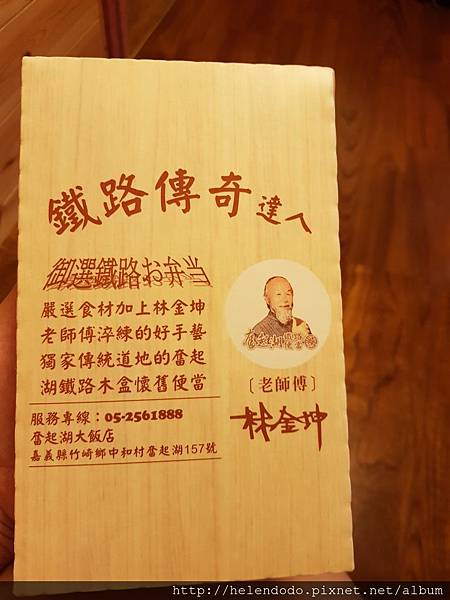 鐵路傳奇達人
御選鐵路お弁当
嚴選食材加上林金坤
老師傅淬練的好手藝
獨家傳統道地的奮起
湖鐵路木盒懷舊便當
服務專線：05-2561888
奮起湖大飯店
嘉義縣竹崎鄉中和村奮起湖157號
〔老師傅〕
林金坤
http://helendodo.pixnet.net/album